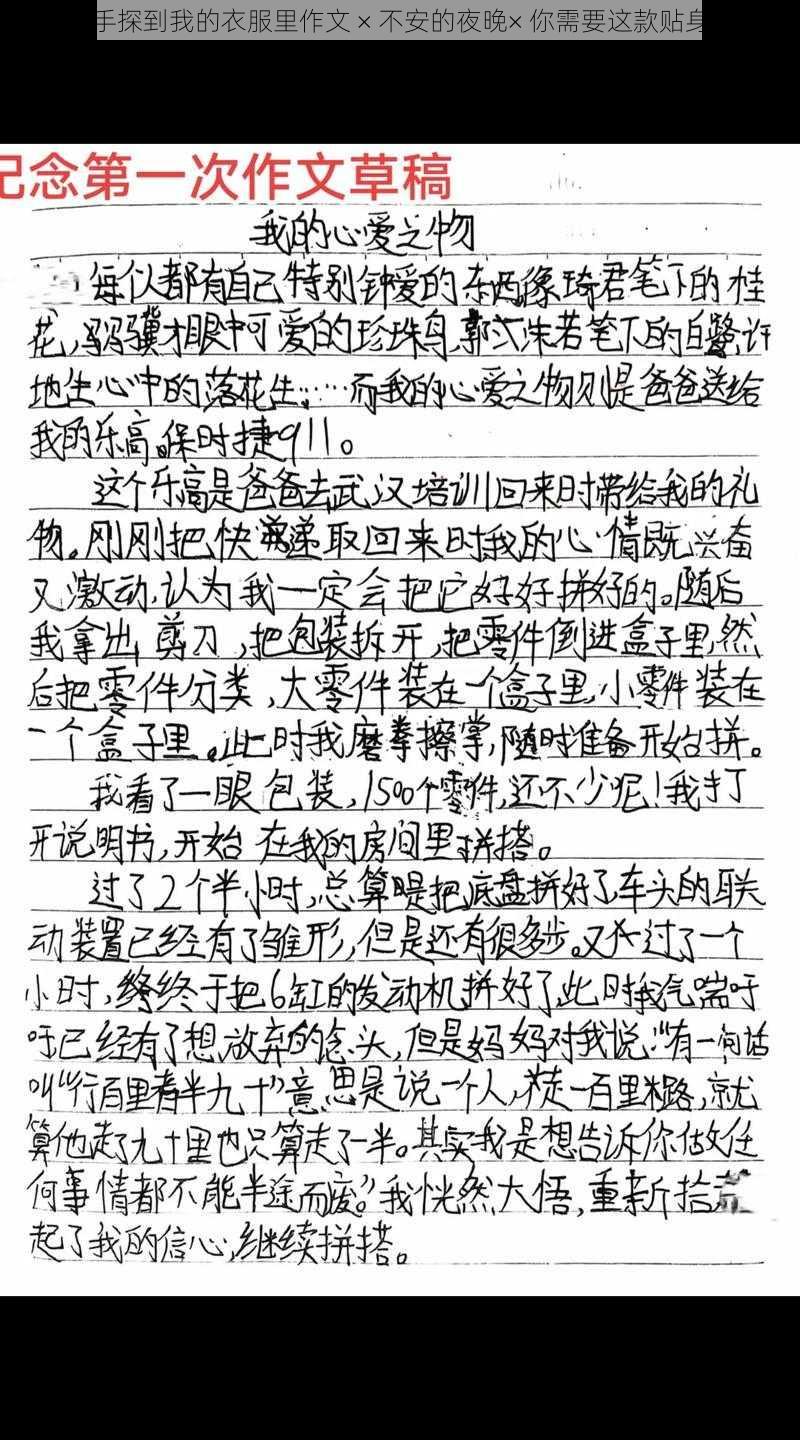 手探到我的衣服里作文 × 不安的夜晚× 你需要这款贴身
纪念第一次作文草稿
我的心爱之物
每个人都有自己特别钟爱的东西,像琦君笔下的桂
花,冯骥才眼中可爱的珍珠鸟,郭沫若笔下的白鹭,许
地生心中的落花生……而我的心爱之物则是爸爸送给
我的乐高保时捷911。
这个乐高是爸爸去武汉培训回来时带给我的礼
物。刚刚把快递取回来时我的心情既兴奋
又激动,认为我一定会把它好好拼好的。随后
我拿出剪刀,把包装拆开,把零件倒进盒子里,然
后把零件分类,大零件装在一个盒子里,小零件装在
一个盒子里。此时我磨拳擦掌,随时准备开始拼。
我看了一眼包装,1500个零件,还不少呢!我打
开说明书,开始在我的房间里拼搭。
过了2个半小时,总算是把底盘拼好了,车头的联
动装置已经有了雏形,但是还有很多步。又过了一个
小时,终于把6缸的发动机拼好了,此时我气喘吁
吁已经有了想放弃的念头,但是妈妈对我说:“有一句话
叫“行百里者半九十”意思是说一个人,走一百里路,就
算他走了九十里也只算走了一半。其实我是想告诉你做任
何事情都不能半途而废。”我恍然大悟,重新拾
起了我的信心,继续拼搭。